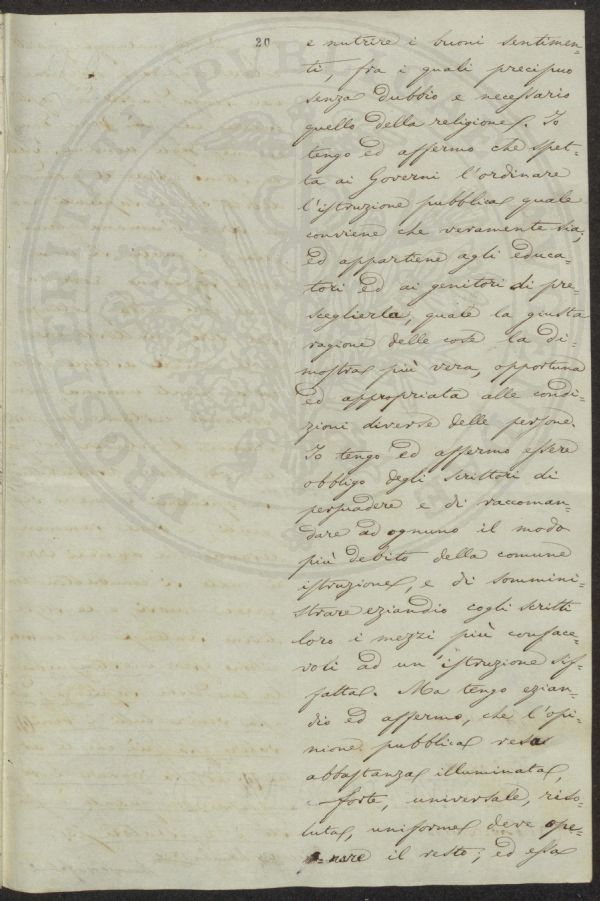 20
e nutrire i buoni sentimen-
ti, fra i quali precipuo
senza dubbio e necessario
quello della religione. Io
tengo ed affermo che spet-
ta ai Governi l'ordinare
l'istruzione pubblica quale
conviene che veramente sia,
ed appartiene agli educa-
tori ed ai genitori di pre-
sceglierla, quale la giusta
ragione delle cose la di-
mostra più vera, opportuna
ed appropriata alle condi-
zioni diverse delle persone.
Io tengo ed affermo essere
obbligo degli scrittori di
persuadere e di raccoman-
dare ad ognuno il modo
più debito della comune
istruzione, e di sommini-
strare eziandio cogli scritti
loro i mezzi più conface-
voli ad un'istruzione sif-
fatta. Ma tengo ezian-
dio ed affermo, che l'opi-
nione pubblica resa
abbastanza illuminata,
forte, universale, riso-
luta, uniforme deve ope-
rare il resto; ed essa